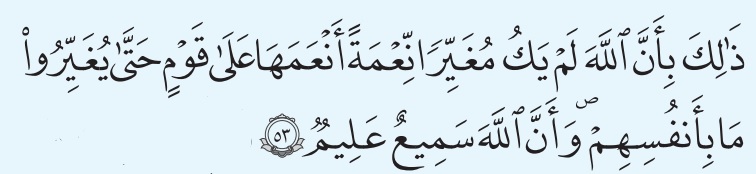 ذَٰلِكَ بِأَنَّ ٱللَّهَ لَمْ يَكُ مُغَيِّرًا نِّعْمَةً أَنْعَمَهَا عَلَىٰ قَوْمٍ حَتَّىٰ يُغَيِّرُوا۟
مَا بِأَنفُسِهِمْ ۙ وَأَنَّ ٱللَّهَ سَمِيعٌ عَلِيمٌ ٥٣